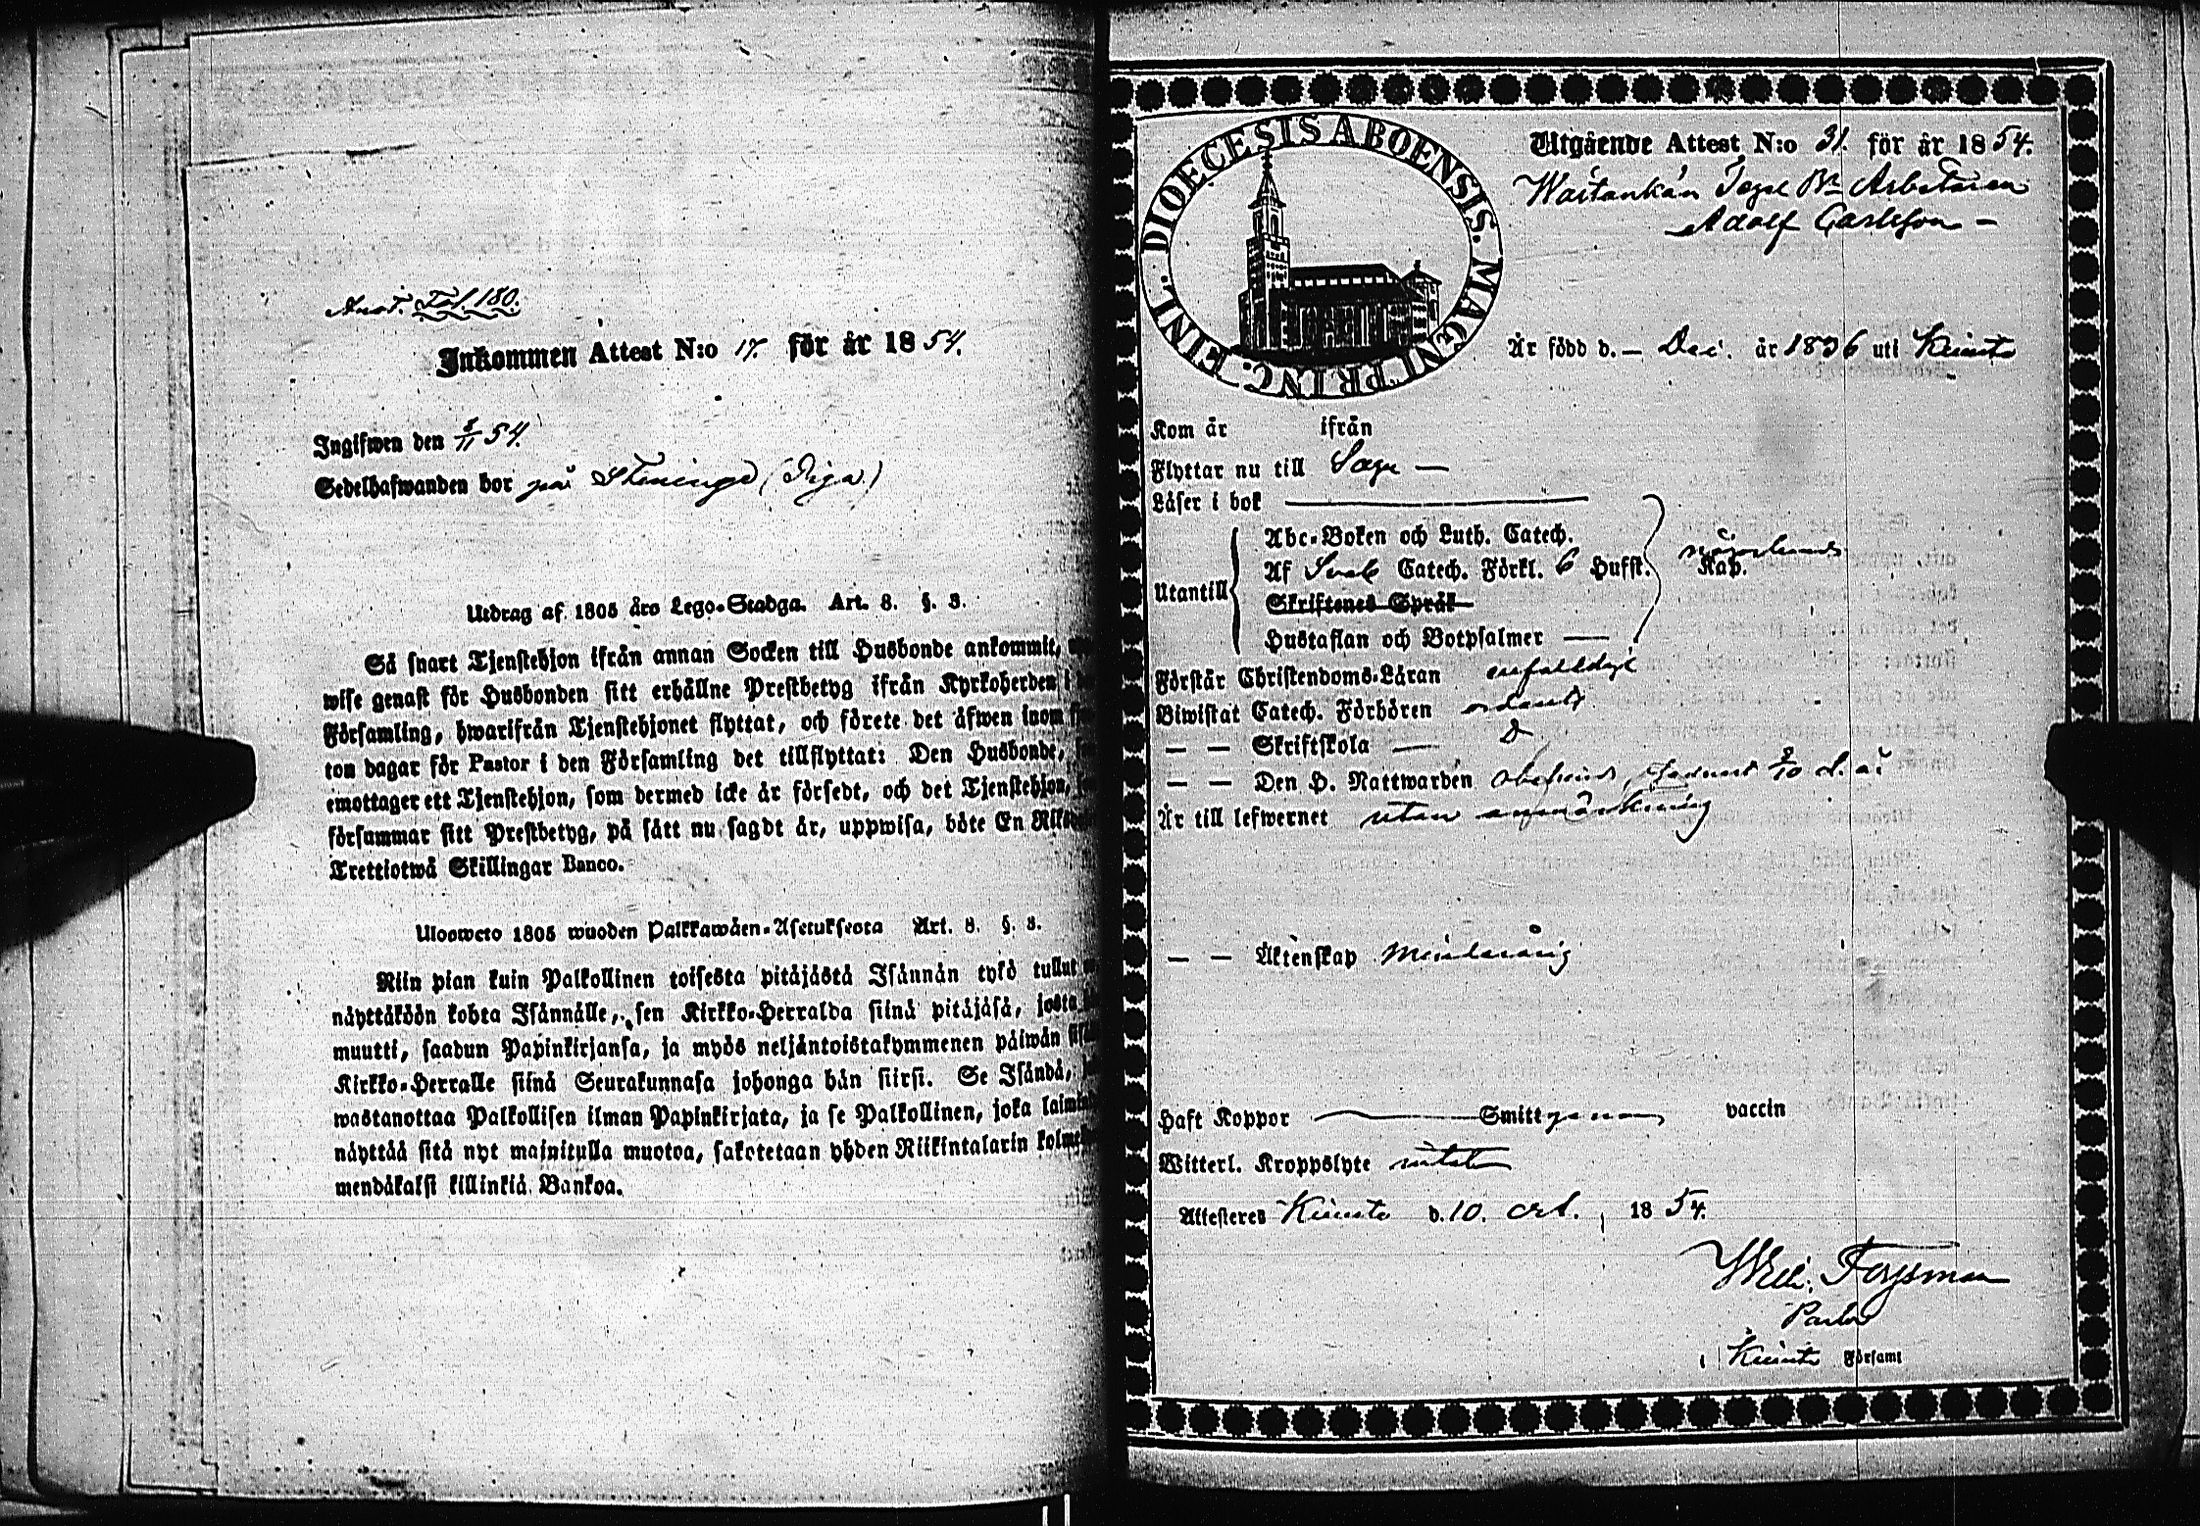 Fol. 180.
Inkommen Attest N:o 17. för år 1854.
Ingifwen den 8/11 54.
Sedelhafwanden bor på (Riga)
Utdrag af 1805 års Lego-Stadga. Art. 8. §. 3.
Så snart Tjenstehjon ifrån annan Socken till Husbonde ankommit,
wise genast för Husbonden sitt erhållne Prestbetyg ifrån Kyrkoherden i
Församling, hwarifrån Tjenstehjonet flyttat, och förete det äfwen inom
ton dagar för Pastor i den Församling det tillflyttat: Den Husbonde,
emottager ett Tjenstehjon, som dermed icke är försedt, och det Tjenstehjon,
försummar sitt Prestbetyg, på sätt nu sagdt är, uppwisa, böte En
Trettiotwå Skillingar Banco.
Ulosweto 1805 wuoden Palkkawäen-Asetuksesta Art. 8. §. 3.
Niin pian kuin Palkollinen toisesta pitäjästä Isännän tykö tullut
näyttäköön kohta Isännälle, sen Kirkko-Herralda siinä pitäjäsä, josta
muutti, saadun Papinkirjansa, ja myös neljäntoistakymmenen päiwän
Kirkko-Herralle siinä Seurakunnasa johonga hän siirsi. Se Isändä,
wastanottaa Palkollisen ilman Papinkirjata, ja se Palkollinen, joka
näyttää sitä nyt mainitulla muotoa, sakotetaan yhden Riikintalarin
mendäkaksi killinkiä Bankoa.
FINL. DIOECESIS ABOENSIS. MAGNI PRINC.
Utgående Attest N:o 31. för år 1854.
Arbetaren
Adolf Carlsson —
Är född d. — Dec. år 1836 uti Kimito
Kom år ifrån
Flyttar nu till Sagu —
Läser i bok
Utantill
Abc-Boken och Luth. Catech.
Af Sveb Catech. Förkl. 6 Hufst. Kap. någorlunda
Skriftenes Språk
Hustaflan och Botpsalmer —
Förstår Christendoms-Läran enfaldigt
Biwistat Catech. Förhören ordentl.
— — Skriftskola — D
— — Den H. Nattwarden 8/10 d. å.
Är till lefwernet utan anmärkning
— — Äktenskap Minderårig
Haft Koppor — Smitt genom vaccin
Witterl. Kroppslyte intet
Attesteres Kimito d. 10. Oct. 1854.
Forssman
Pastor
i Kimito Församl